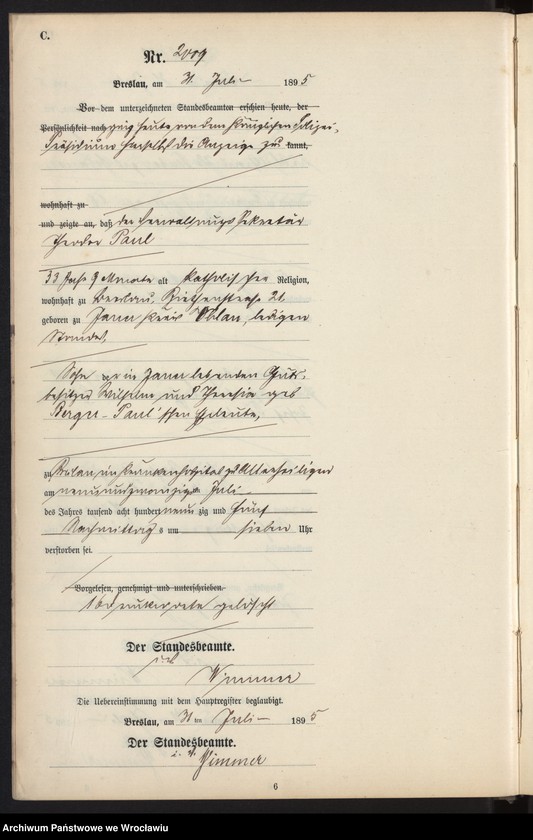 C.
Nr. 2009
Breslau, am 31. Juli 1895
Vor dem unterzeichneten Standesbeamten erschien heute, der
Persönlichkeit nach zeigt heute von dem Königlichen Polizei-
Präsidium hierselbst die Anzeige zu kannt,
wohnhaft zu
und zeigte an, daß der Verwaltungs Sekretär
Theodor Paul
33 Jahr 9 Monate alt, katholischer Religion,
wohnhaft zu Breslau, Zietenstraße 21
geboren zu Jauer Kreis Ohlau, ledigen
Standes,
Sohn der in Jauer lebenden Guts-
besitzer Wilhelm und Theresia geb
Berger-Paul'schen Eheleute,
zu Breslau im Krankenhospital zu Allerheiligen
am neunundzwanzigsten Juli
des Jahres tausend acht hundert neunzig und fünf
Nachmittags um sieben Uhr
verstorben sei.
Vorgelesen, genehmigt und unterschrieben.
16 Druckworte gelöscht
Der Standesbeamte.
i. V.
Wimmer
Die Uebereinstimmung mit dem Hauptregister beglaubigt.
Breslau, am 31ten Juli 1895
Der Standesbeamte.
i. V. Wimmer
6
Archiwum Państwowe we Wrocławiu